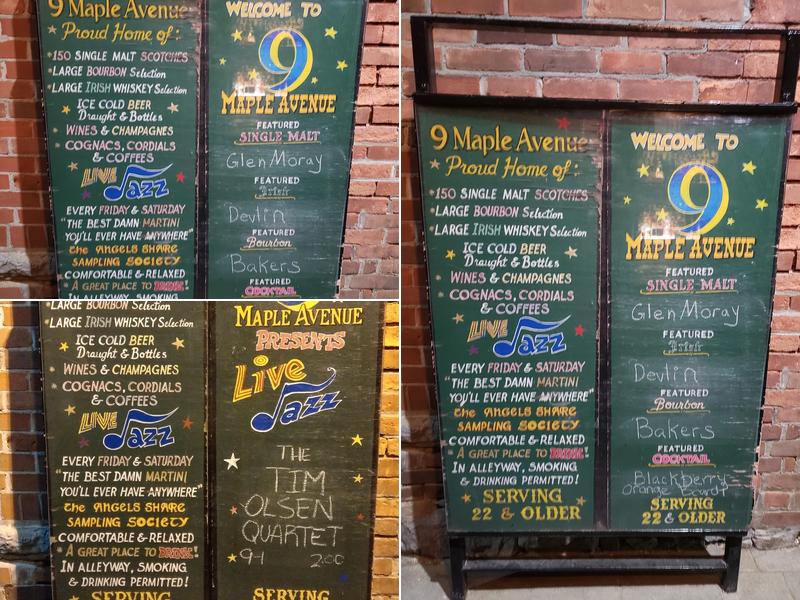 9 Maple Avenue
Proud Home of:
•150 SINGLE MALT SCOTCHES
•LARGE BOURBON Selection
•LARGE IRISH WHISKEY Selection
ICE COLD BEER
Draught & Bottles
WINES & CHAMPAGNES
COGNACS, CORDIALS
& COFFEES
LIVE
Jazz
EVERY FRIDAY & SATURDAY
"THE BEST DAMN MARTINI
YOU'LL EVER HAVE ANYWHERE"
the ANGELS SHARE
SAMPLING SOCIETY
COMFORTABLE & RELAXED
A GREAT PLACE TO DRINK!
IN ALLEYWAY, SMOKING
WELCOME TO
9
MAPLE AVENUE
FEATURED
SINGLE MALT
Glen Moray
FEATURED
Irish
Devlin
FEATURED
Bourbon
Bakers
FEATURED
COCKTAIL
LARGE BOURBON Selection
•LARGE IRISH WHISKEY Selection
ICE COLD BEER
Draught & Bottles
WINES & CHAMPAGNES
COGNACS, CORDIALS
& COFFEES
LIVE
Jazz
EVERY FRIDAY & SATURDAY
"THE BEST DAMN MARTINI
YOU'LL EVER HAVE ANYWHERE"
the ANGELS SHARE
SAMPLING SOCIETY
COMFORTABLE & RELAXED
A GREAT PLACE TO DRINK!
IN ALLEYWAY, SMOKING
& DRINKING PERMITTED!
SERVING
MAPLE AVENUE
PRESENTS
Live
Jazz
THE
TIM
OLSEN
QUARTET
9-1 2:00
SERVING
9 Maple Avenue
Proud Home of:
•150 SINGLE MALT SCOTCHES
•LARGE BOURBON Selection
•LARGE IRISH WHISKEY Selection
ICE COLD BEER
Draught & Bottles
WINES & CHAMPAGNES
COGNACS, CORDIALS
& COFFEES
LIVE
Jazz
EVERY FRIDAY & SATURDAY
"THE BEST DAMN MARTINI
YOU'LL EVER HAVE ANYWHERE"
the ANGELS SHARE
SAMPLING SOCIETY
COMFORTABLE & RELAXED
A GREAT PLACE TO DRINK!
IN ALLEYWAY, SMOKING
& DRINKING PERMITTED!
SERVING
22 & OLDER
WELCOME TO
9
MAPLE AVENUE
FEATURED
SINGLE MALT
Glen Moray
FEATURED
Irish
Devlin
FEATURED
Bourbon
Bakers
FEATURED
COCKTAIL
Blackberry
Orange
SERVING
22 & OLDER